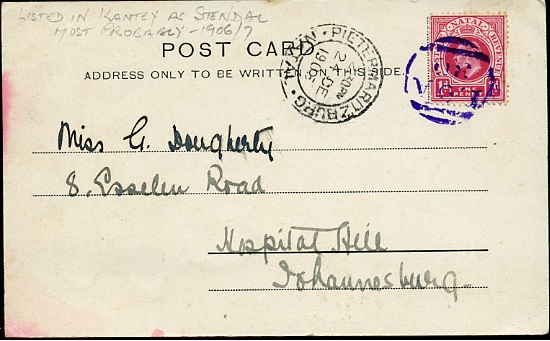 LISTED IN KANTEY AS STENDAL
MOST PROBABLY - 1906/7
POST CARD.
ADDRESS ONLY TO BE WRITTEN ON THIS SIDE.
PIETERMARITZBURG · NATAL ·
24 DE
1905
POSTAGE NATAL REVENUE
1D ONE PENNY
Miss G. Dougherty
8. Esselen Road
Hospital Hill
Johannesburg.